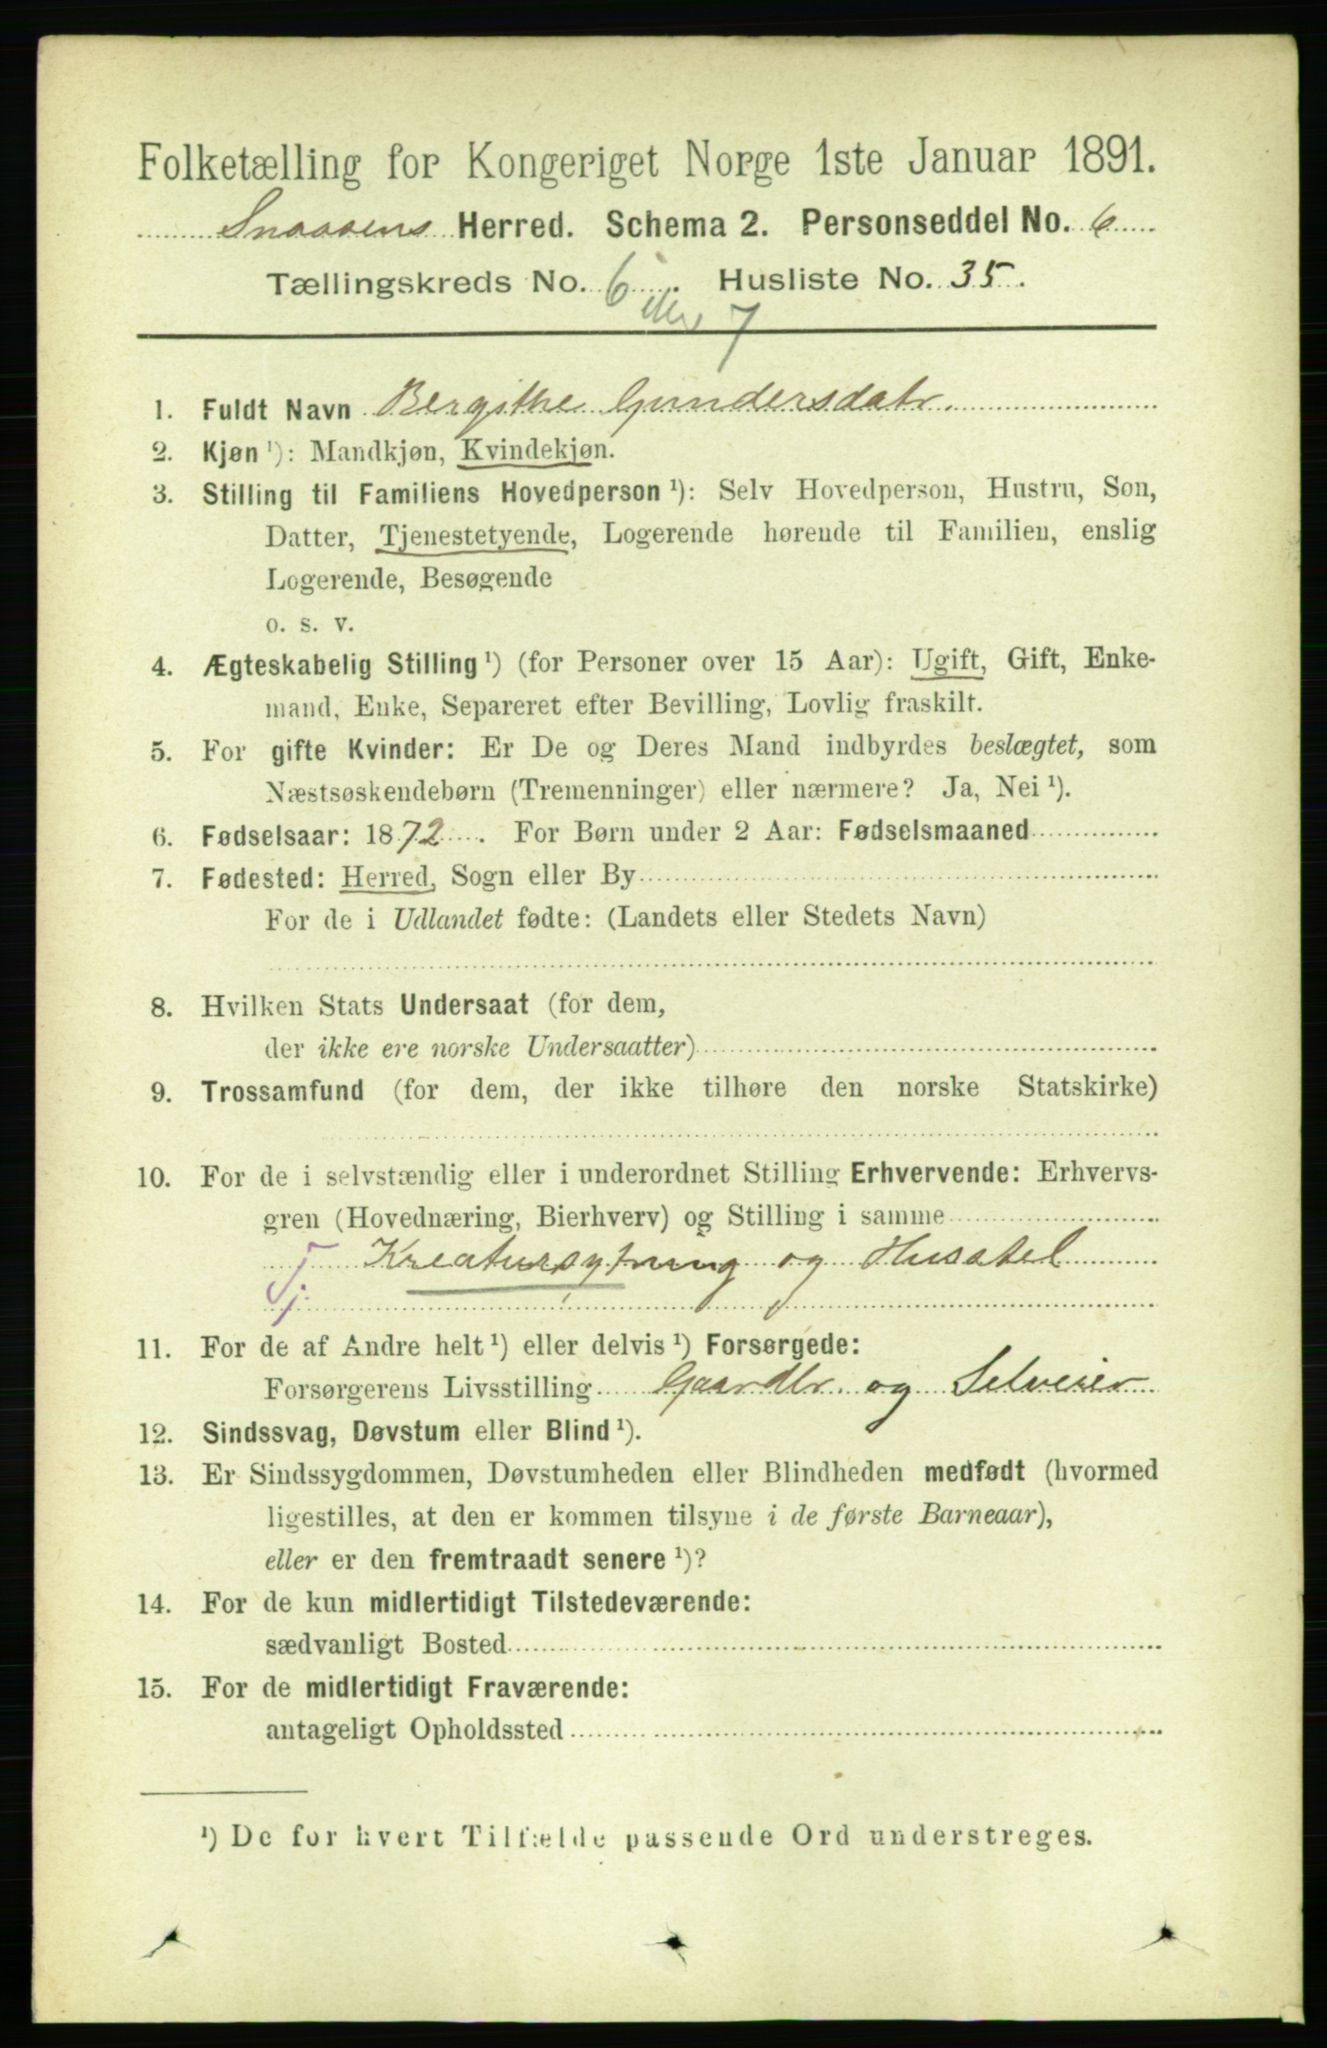 Folketælling for Kongeriget Norge 1ste Januar 1891.
Snaasens Herred. Schema 2. Personseddel No. 6
Tællingskreds No. 6. Husliste No. 35.
7
1. Fuldt Navn Bergithe Gundersdatr.
2. Kjøn ¹): Mandkjøn, Kvindekjøn.
3. Stilling til Familiens Hovedperson ¹): Selv Hovedperson, Hustru, Søn,
Datter, Tjenestetyende, Logerende hørende til Familien, enslig
Logerende, Besøgende
o. s. v.
4. Ægteskabelig Stilling ¹) (for Personer over 15 Aar): Ugift, Gift, Enke-
mand, Enke, Separeret efter Bevilling, Lovlig fraskilt.
5. For gifte Kvinder: Er De og Deres Mand indbyrdes beslægtet, som
Næstsøskendebørn (Tremenninger) eller nærmere? Ja, Nei ¹).
6. Fødselsaar: 1872. For Børn under 2 Aar: Fødselsmaaned
7. Fødested: Herred, Sogn eller By
For de i Udlandet fødte: (Landets eller Stedets Navn)
8. Hvilken Stats Undersaat (for dem,
der ikke ere norske Undersaatter)
9. Trossamfund (for dem, der ikke tilhøre den norske Statskirke)
10. For de i selvstændig eller i underordnet Stilling Erhvervende: Erhvervs-
gren (Hovednæring, Bierhverv) og Stilling i samme
Tj. Kreatursytning og Husstel
11. For de af Andre helt ¹) eller delvis ¹) Forsørgede:
Forsørgerens Livsstilling Gaardbr. og Selveier
12. Sindssvag, Døvstum eller Blind ¹).
13. Er Sindssygdommen, Døvstumheden eller Blindheden medfødt (hvormed
ligestilles, at den er kommen tilsyne i de første Barneaar),
eller er den fremtraadt senere ¹)?
14. For de kun midlertidigt Tilstedeværende:
sædvanligt Bosted
15. For de midlertidigt Fraværende:
antageligt Opholdssted
¹) De for hvert Tilfælde passende Ord understreges.